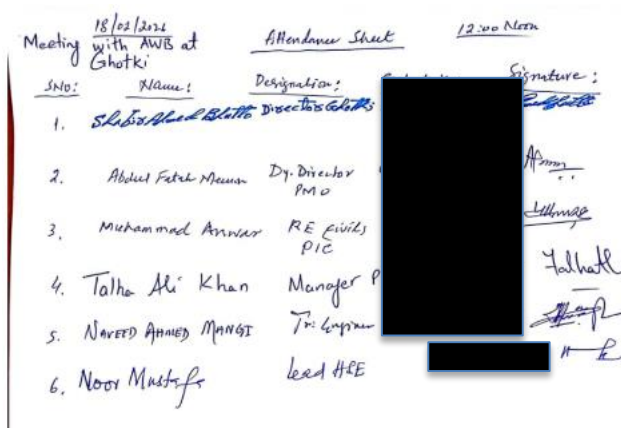 18/02/2026
Meeting with AWB at Ghotki
Attendance Sheet
12:00 Noon
SNO: Name: Designation: Signature:
1. Shabir Ahmed Bhutto Director Ghotki
2. Abdul Fatah Memon Dy. Director PMO
3. Muhammad Anwar RE Civils PIC
4. Talha Ali Khan Manager P Talhatl
5. NAVEED AHMED MANGI Tr: Engineer
6. Noor Mustafa Lead HSE